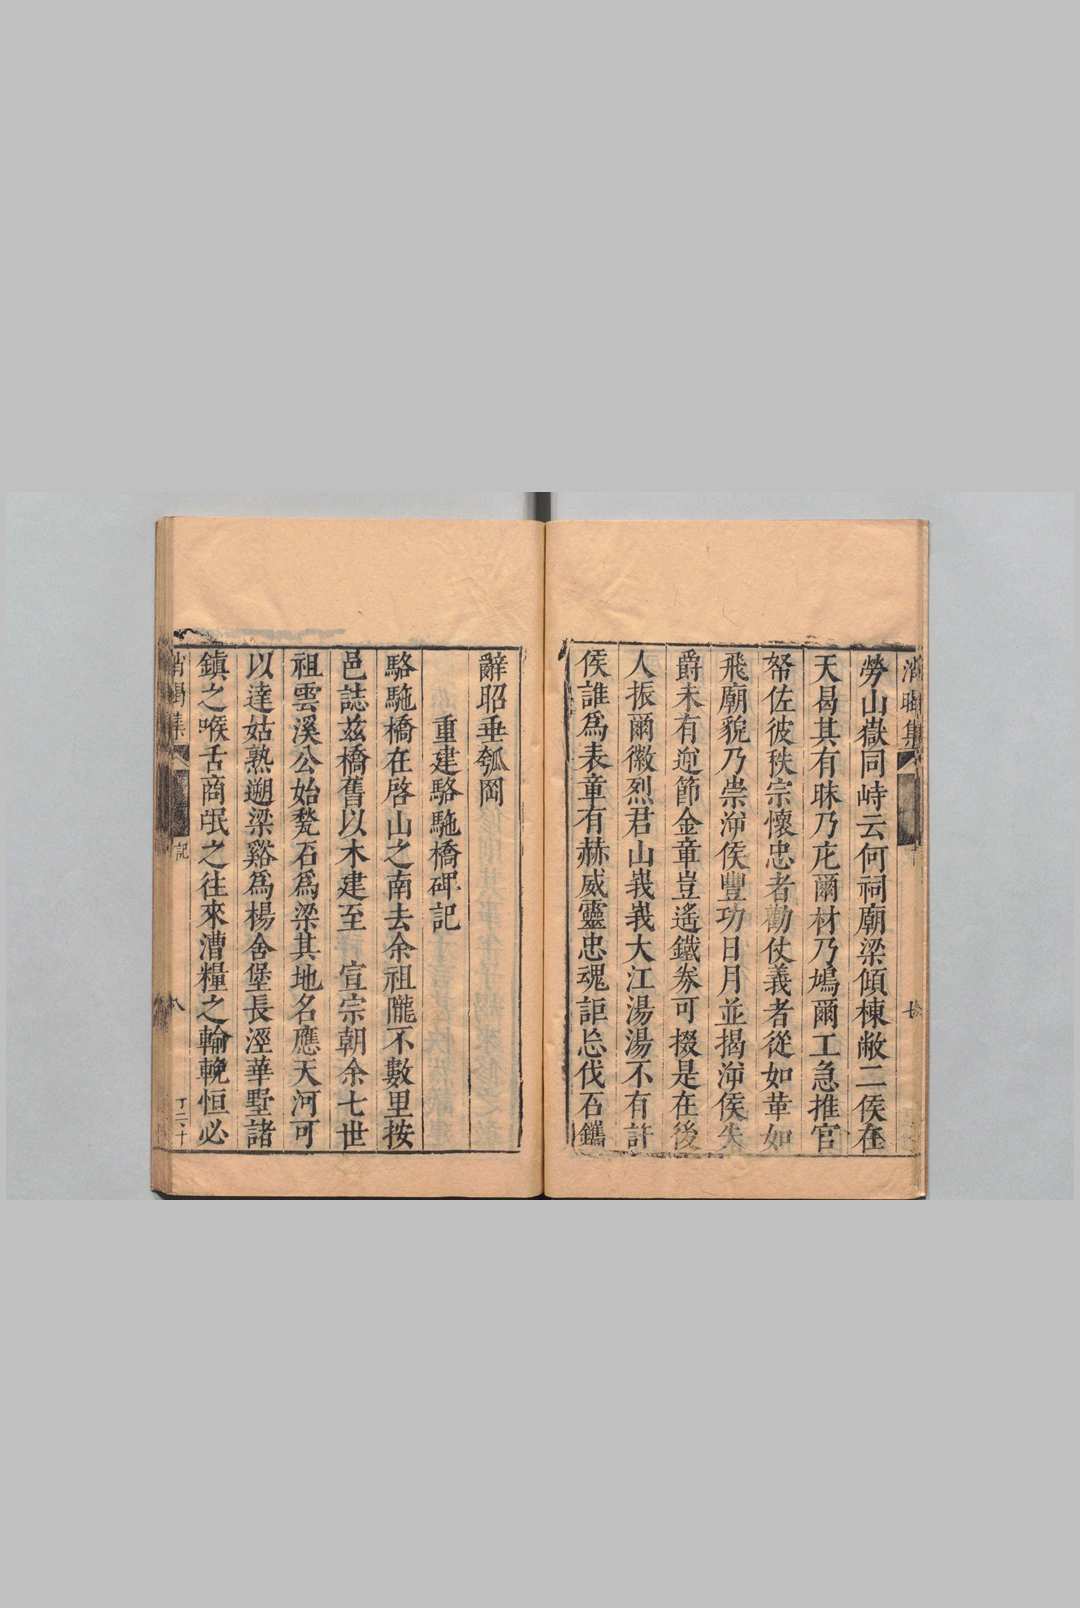 勞山嶽同峙云何祠廟梁傾棟敝二侯在
天曷其有昧乃庀爾材乃鳩爾工急推官
帑佐彼秩宗懷忠者勸仗義者從如革如
飛廟貌乃崇沛侯豐功日月並揭沛侯失
爵未有迎節金章豈遙鐵券可掇是在後
人振爾徽烈君山峩峩大江湯湯不有許
侯誰爲表章有赫威靈忠魂詎忘伐石鐫
辭昭垂瓠岡
重建駱駞橋碑記
駱駞橋在啓山之南去余祖隴不數里按
邑誌茲橋舊以木建至 宣宗朝余七世
祖雲溪公始甃石爲梁其地名應天河可
以達姑熟遡梁谿爲楊舍堡長涇華墅諸
鎮之喉舌商氓之往來漕糧之輸輓恒必
記